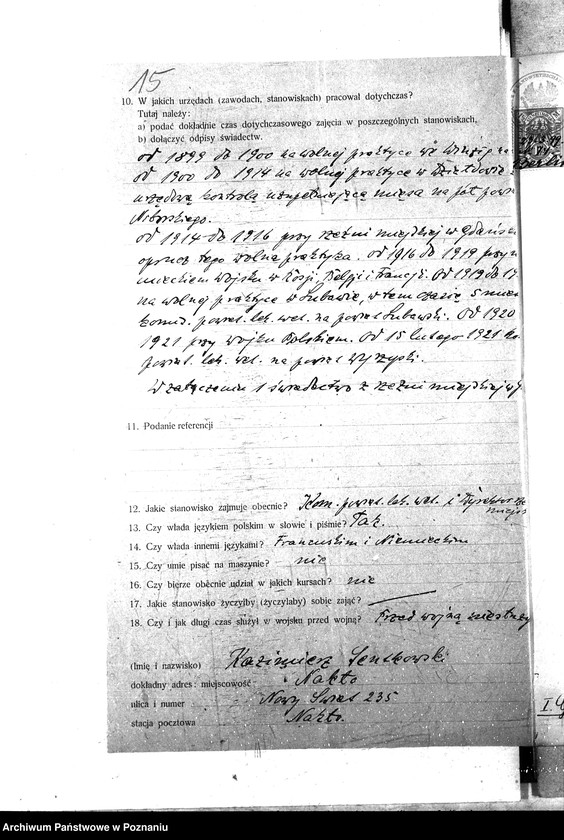 15
10. W jakich urzędach (zawodach, stanowiskach) pracował dotychczas?
Tutaj należy:
a) podać dokładnie czas dotychczasowego zajęcia w poszczególnych stanowiskach,
b) dołączyć odpisy świadectw.
od 1899 do 1900 na wolnej praktyce we
od 1900 do 1914 na wolnej praktyce w Działdowie
urzędową kontrolą uzupełniającą mięsa na pół pow
Niborskiego.
od 1914 do 1916 przy rzeźni miejskiej w Gdańs
oprócz tego wolna praktyka. od 1916 do 1919 przy
mieckiem wojsku w Rosji, Belgji i Francji. Od 1919 do 19
na wolnej praktyce w Lubawie, w tem czasie 5 mie
komis. powiat. lek. wet. na powiat Lubawski. Od 1920
1921 przy wojsku Polskiem. Od 15 lutego 1921 ko
powiat. lek. wet. na powiat wyrzyski.
W załączeniu 1 świadectwo z rzeźni miejskiej
11. Podanie referencji
12. Jakie stanowisko zajmuje obecnie? Kom. powiat. lek. wet. i Dyrektor rze
miejs
13. Czy włada językiem polskim w słowie i piśmie? Tak.
14. Czy włada innemi językami? Francuskim i Niemieckim
15. Czy umie pisać na maszynie? nie
16. Czy bierze obecnie udział w jakich kursach? nie
17. Jakie stanowisko życzyłby (życzyłaby) sobie zająć?
18. Czy i jak długi czas służył w wojsku przed wojną? Przed wojną niesłuży
(Imię i nazwisko) Kazimierz Sentkowski
dokładny adres: miejscowość Nakło
ulica i numer Nowy Świat 235
stacja pocztowa Nakło.
Archiwum Państwowe w Poznaniu